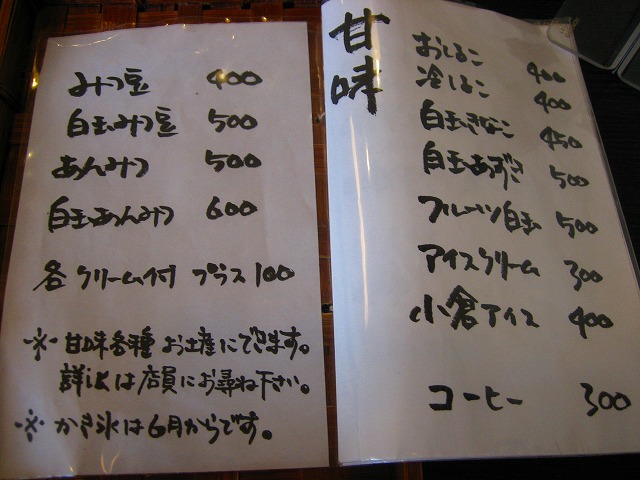 甘味
おしるこ 400
冷しるこ 400
白玉きなこ 450
白玉あずき 500
フルーツ白玉 500
アイスクリーム 300
小倉アイス 400
コーヒー 300
みつ豆 400
白玉みつ豆 500
あんみつ 500
白玉あんみつ 600
各クリーム付 プラス100
※甘味各種お土産にできます。
詳しくは店員にお尋ね下さい。
※かき氷は6月からです。